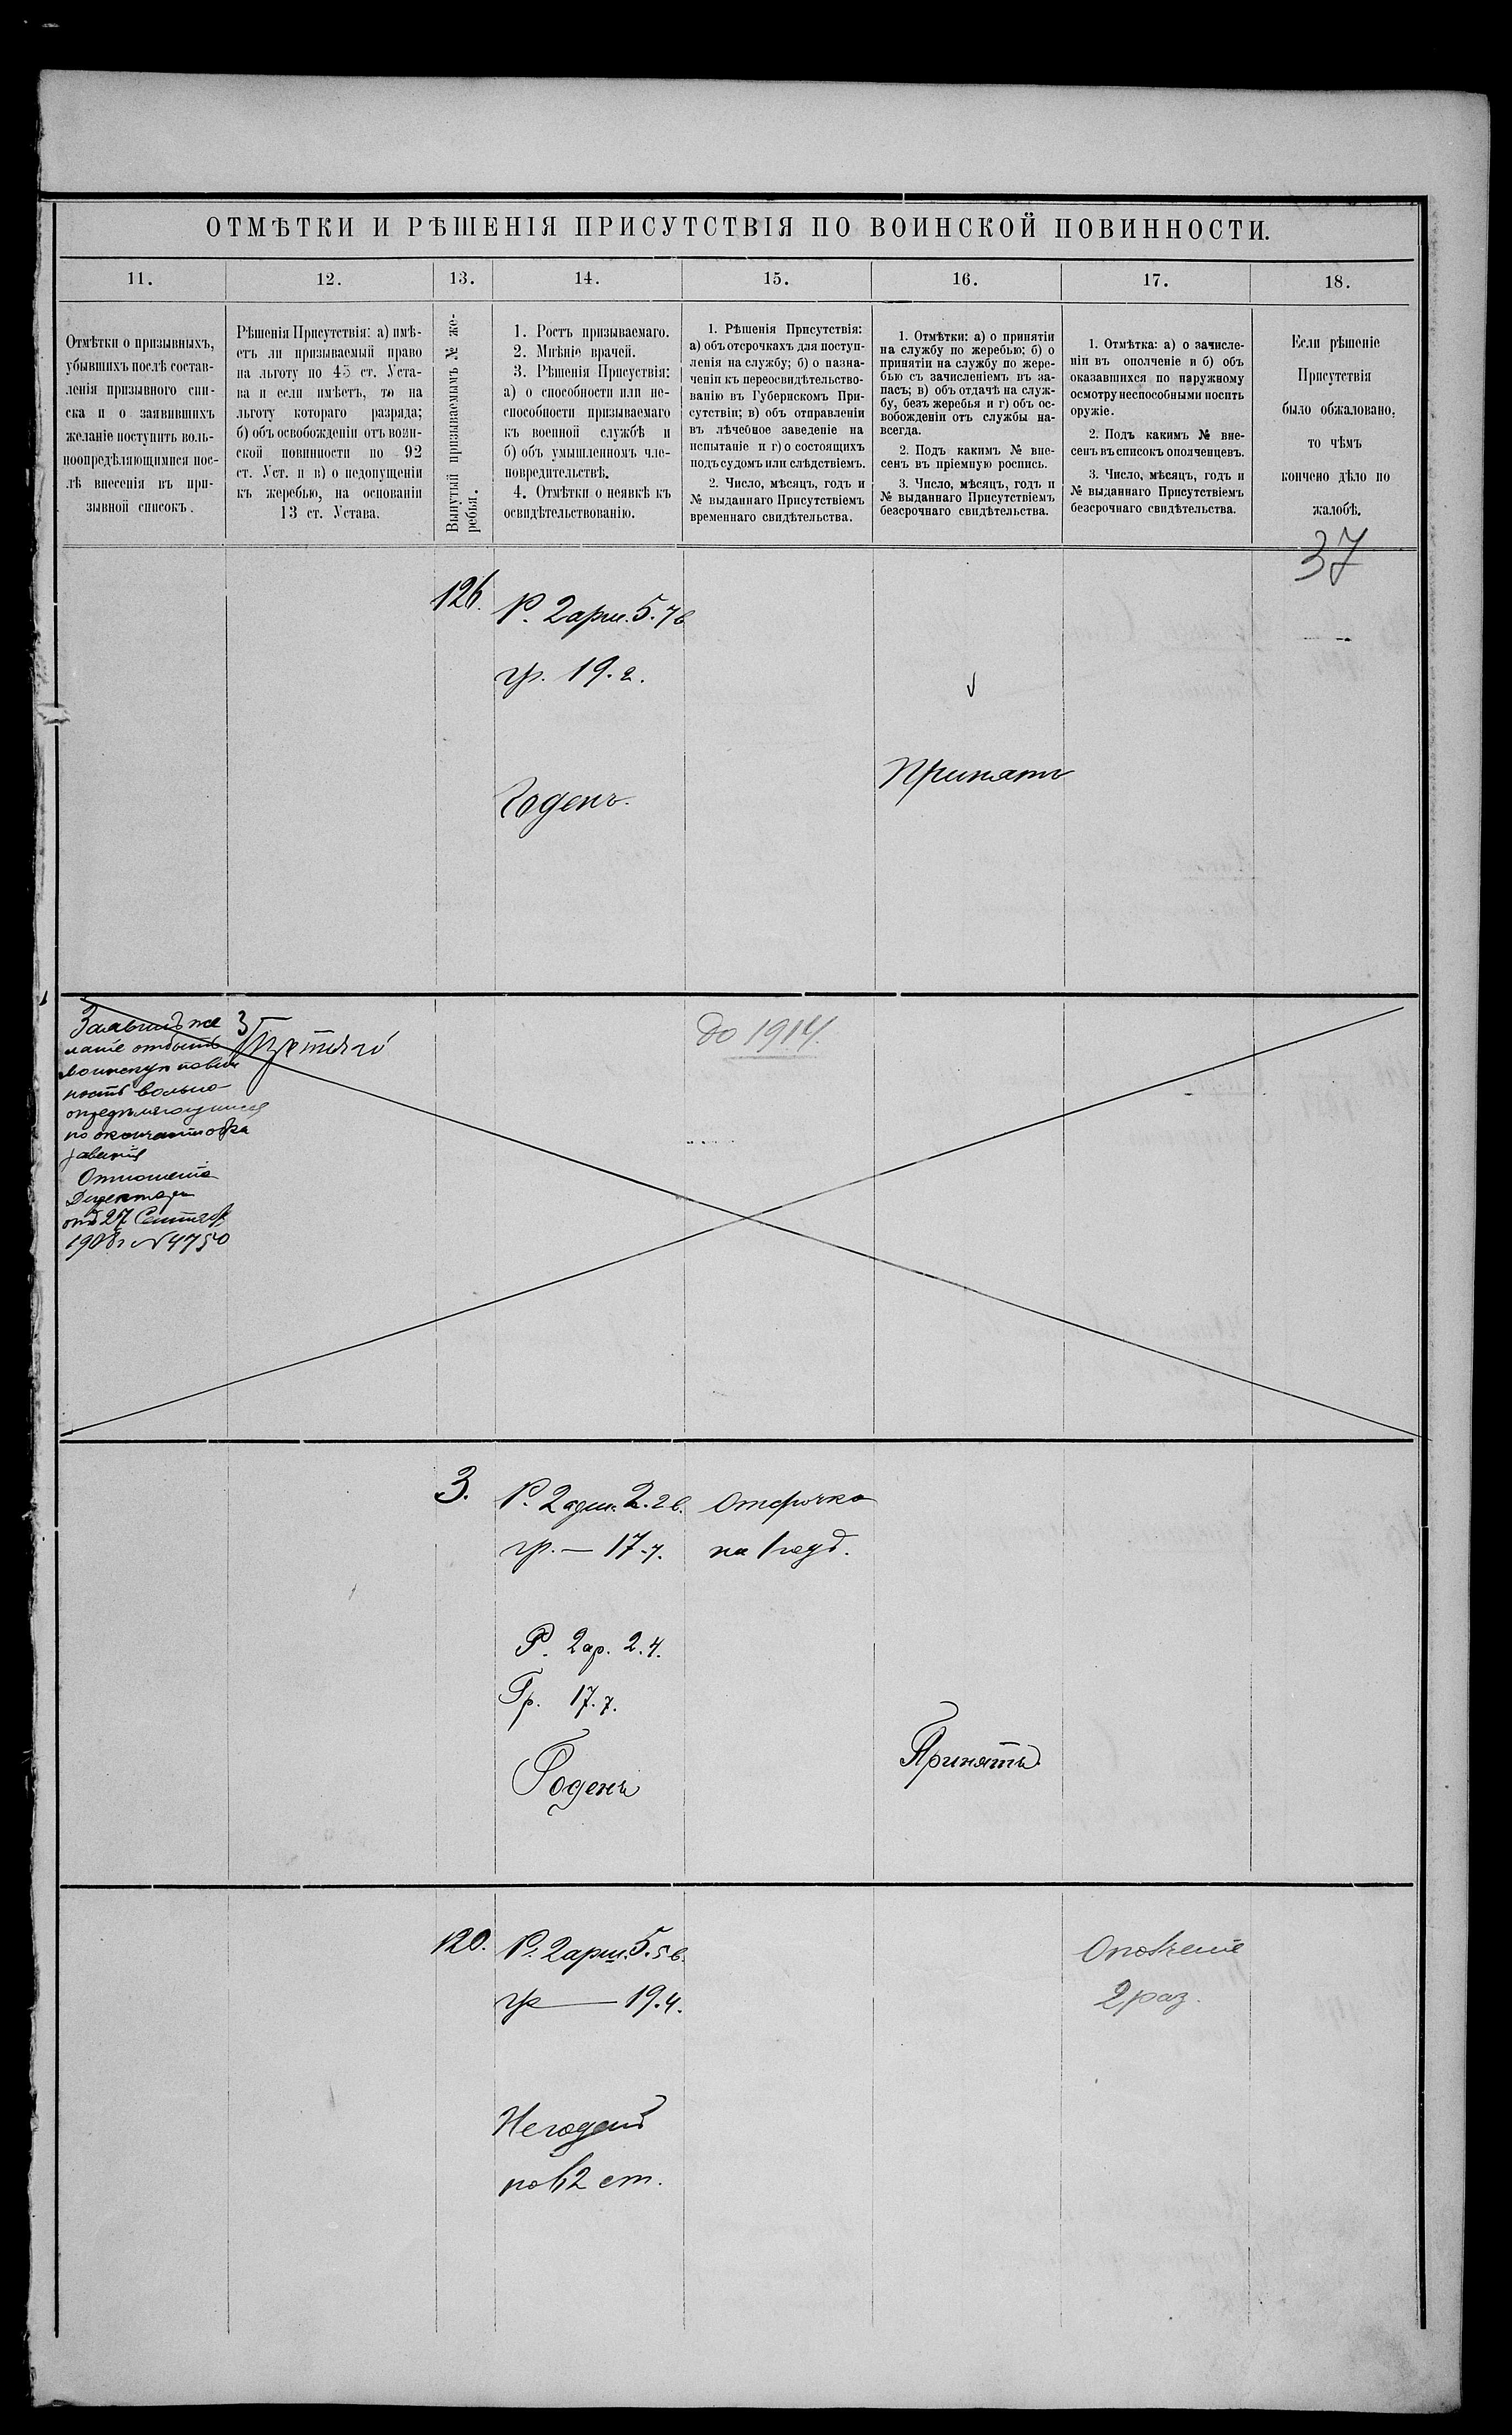 ОТМѢТКИ И РѢШЕНІЯ ПРИСУТСТВІЯ ПО ВОИНСКОЙ ПОВИННОСТИ.
11.
12.
13.
14.
15.
16.
17.
18.
Отмѣтки о призывныхъ,
убывшихъ послѣ состав-
ленія призывного спи-
ска и о заявившихъ
желаніе поступить воль-
ноопредѣляющимися пос-
лѣ внесенія въ при-
зывной списокъ.
Рѣшенія Присутствія: а) имѣ-
етъ ли призываемый право
на льготу по 45 ст. Уста-
ва и если имѣетъ, то на
льготу котораго разряда;
б) объ освобожденіи отъ воин-
ской повинности по 92
ст. Уст. и в) о недопущеніи
къ жеребью, на основаніи
13 ст. Устава.
Вынутый призываемымъ № же-
ребья.
1. Ростъ призываемаго.
2. Мнѣніе врачей.
3. Рѣшенія Присуствія:
а) о способности или не-
способности призываемаго
къ военной службѣ и
б) объ умышленномъ чле-
новредительствѣ.
4. Отмѣтки о неявкѣ къ
освидѣтельствованію.
1. Рѣшенія Присутствія:
а) объ отсрочкахъ для поступ-
ленія на службу; б) о назна-
ченіи къ переосвидѣтельство-
ванію въ Губернскомъ При-
сутствіи; в) объ отправленіи
въ лѣчебное заведеніе на
испытаніе и г) о состоящихъ
подъ судомъ или слѣдствіемъ.
2. Число, мѣсяцъ, годъ и
№ выданнаго Присутствіемъ
временнаго свидѣтельства.
1. Отмѣтки: а) о принятіи
на службу по жеребью; б) о
принятіи на службу по жере-
бью съ зачисленіемъ въ за-
пасъ; в) объ отдачѣ на служ-
бу, безъ жеребья и г) объ ос-
вобожденіи отъ службы на-
всегда.
2. Подъ какимъ № вне-
сенъ въ пріемную роспись.
3. Число, мѣсяцъ, годъ и
№ выданнаго Присутствіемъ
безсрочнаго свидѣтельства.
1. Отмѣтка: а) о зачисле-
ніи въ ополченіе и б) объ
оказавшихся по наружному
осмотру неспособными носить
оружіе.
2. Подъ какимъ № вне-
сенъ въ списокъ ополченцевъ.
3. Число, мѣсяцъ, годъ и
№ выданнаго Присутствіемъ
безсрочнаго свидѣтельства.
Если рѣшеніе
Присутствія
было обжаловано,
то чѣмъ
кончено дѣло по
жалобѣ.
37
126.
Р. 2арш. 5.7в
гр. 19.2.
Годенъ.
Принятъ
Заявилъ же
ланіе отбыть
воинскую повин
ность вольно-
опредѣляющимся
по окончаніи обра
зованія
Отношеніе
Директора
отъ 27 Сентября
1908г №4750
3
Третьяго
до 1914.
3.
Р. 2арш. 2.2в.
гр. — 17.7.
Отсрочка
на 1 годъ.
Р. 2ар. 2.4.
Гр. 17.7.
Годенъ
Принятъ
120.
Р. 2арш. 5.5в.
гр — 19.4.
Негоденъ
по 62 ст.
Ополченіе
2 раз.